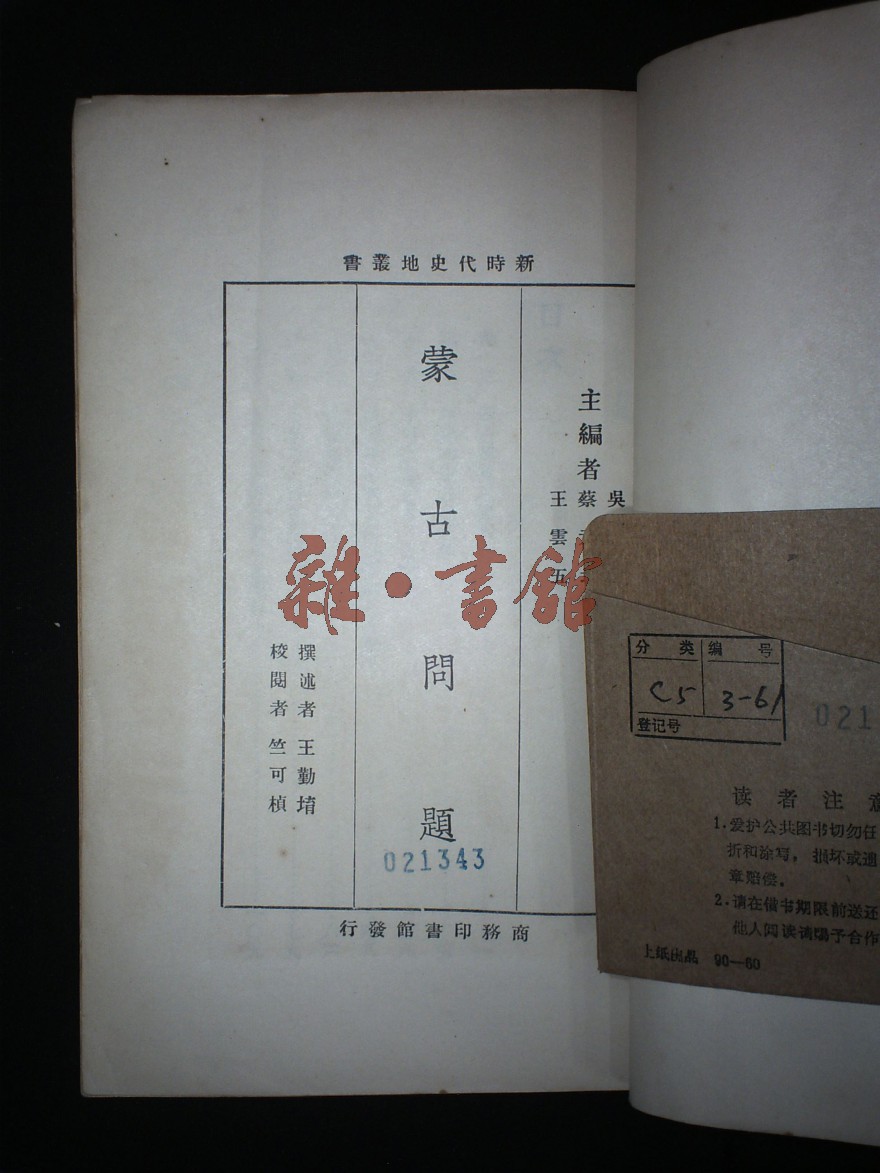 新時代史地叢書
主編者
吳
蔡
王雲五
蒙古問題
021343
撰述者 王勤堉
校閱者 竺可楨
商務印書館發行
雜·書館
分类 编号
C5 3-61
登记号
021
读者注意
1.爱护公共图书切勿任
折和涂写，损坏或遗
章赔偿。
2.请在借书期限前送还
他人阅读请赐予合作
上纸出品 90—60